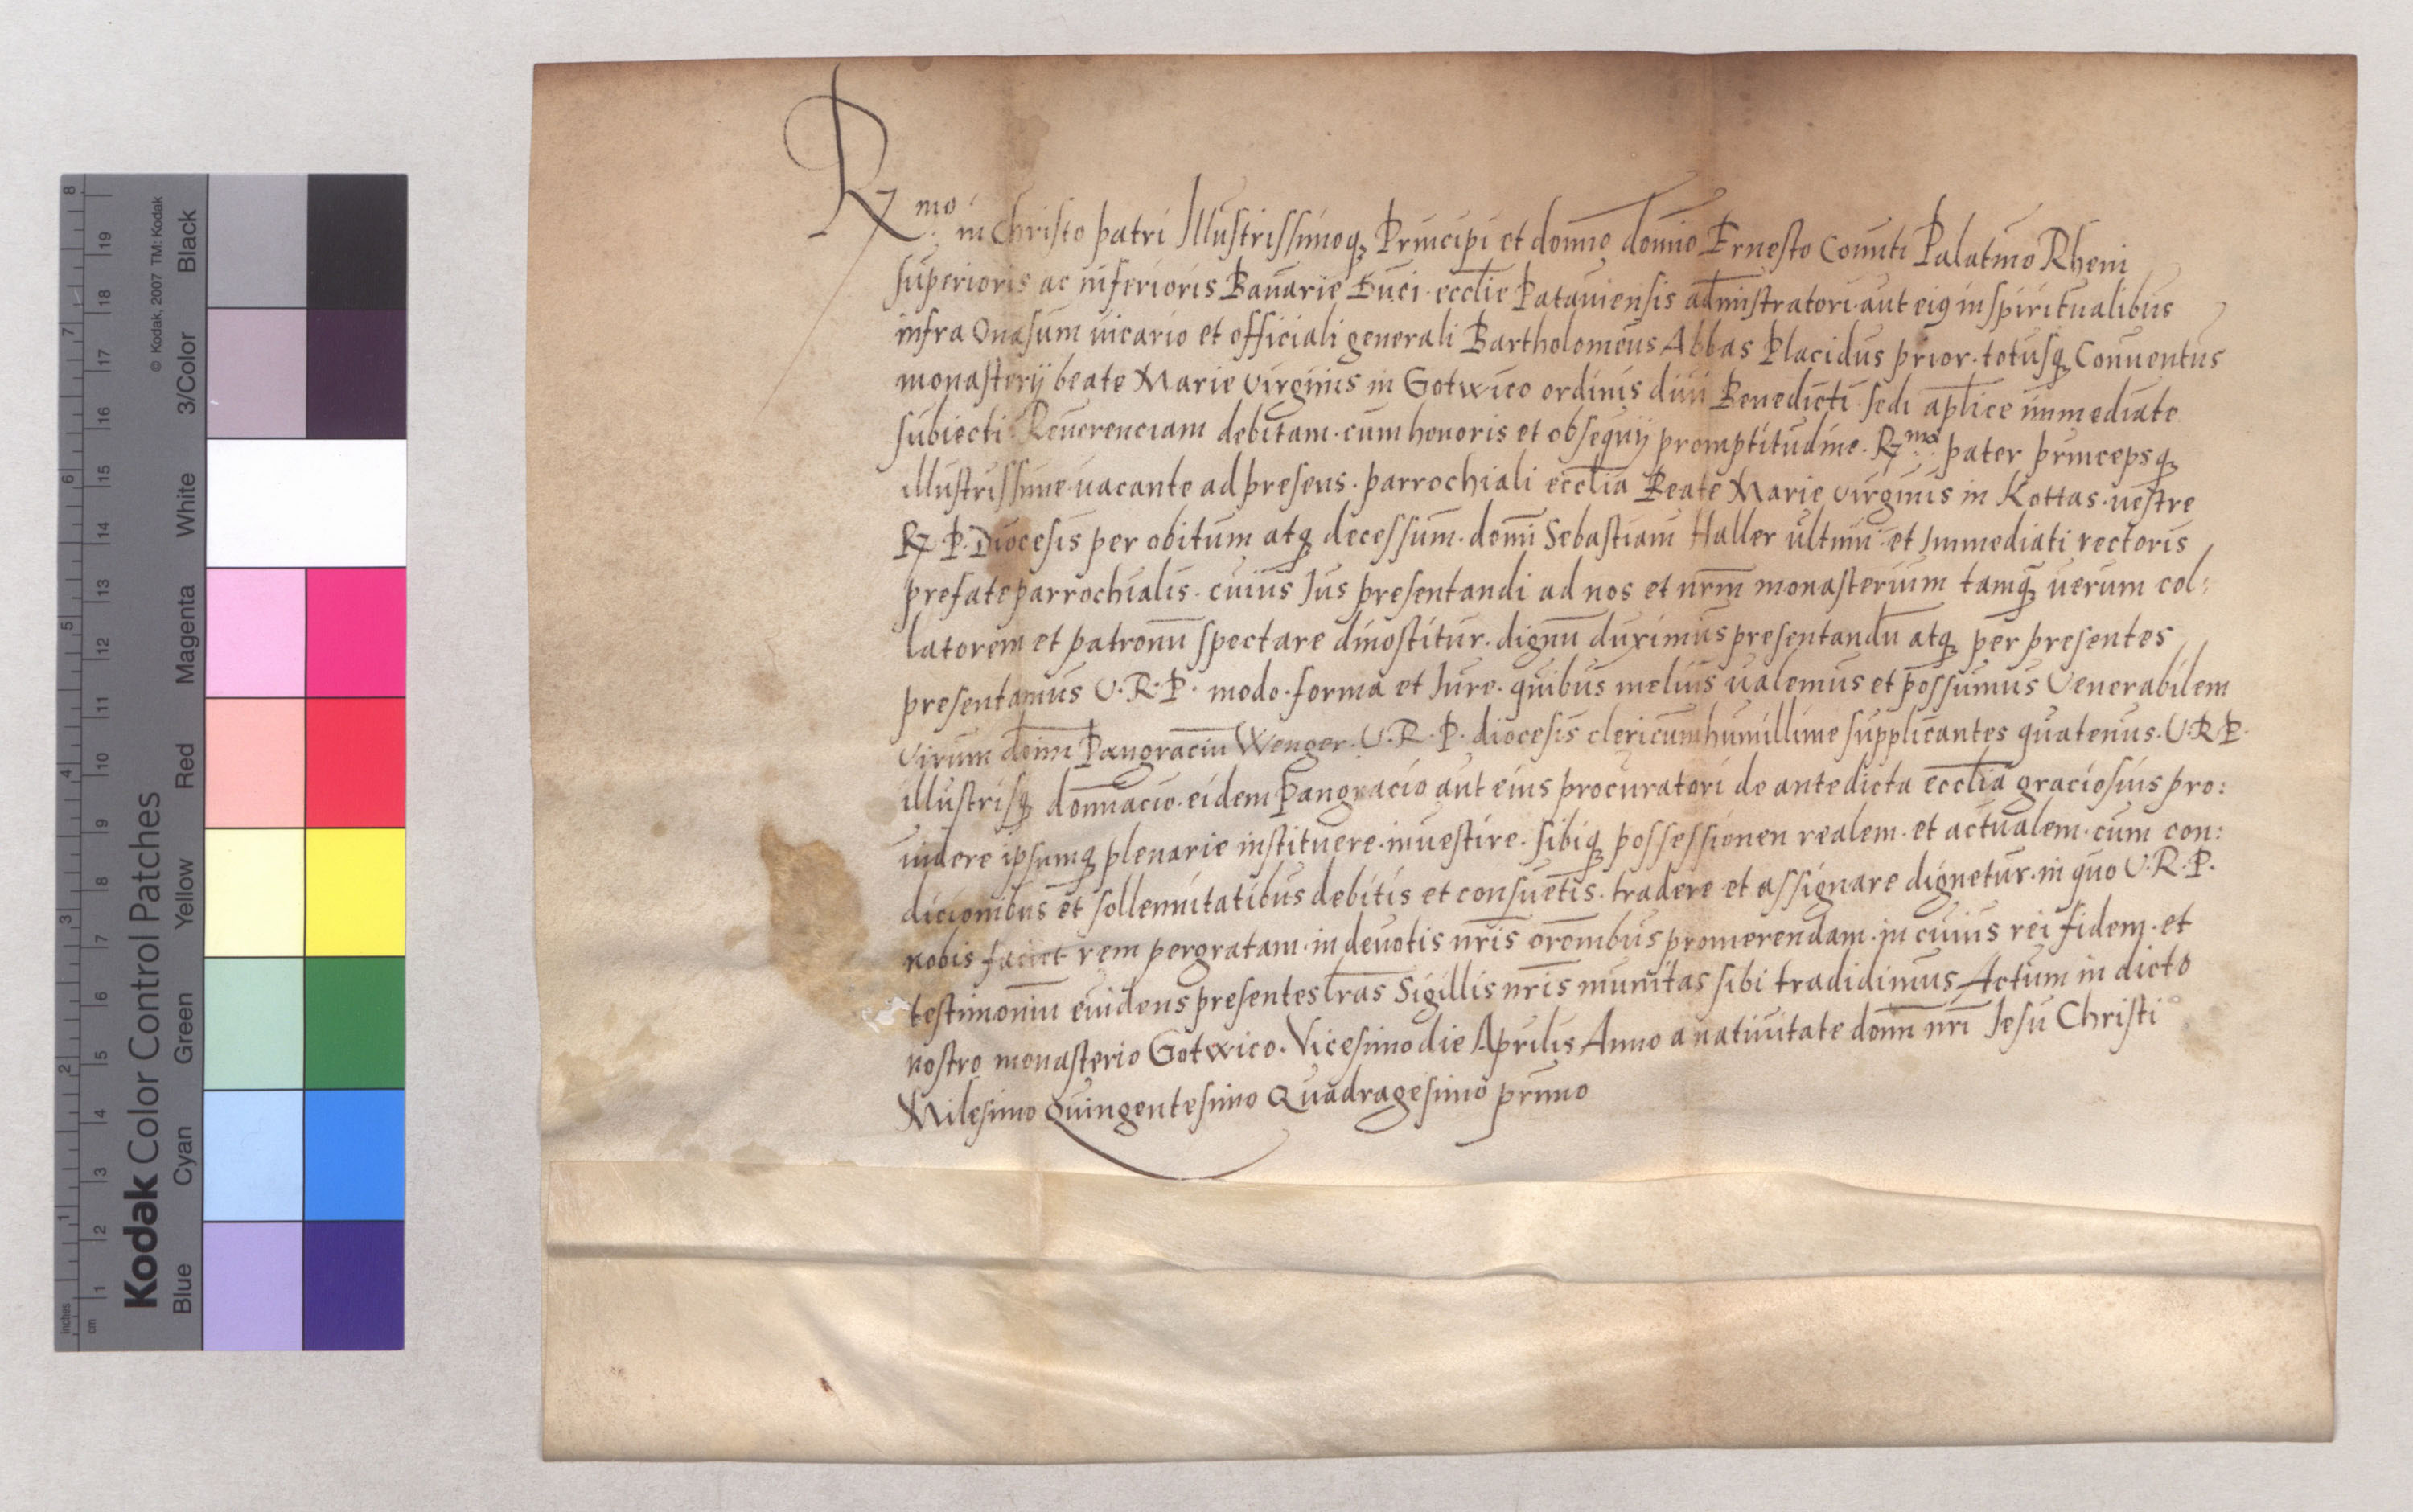 Kodak Color Control Patches
© Kodak, 2007 TM: Kodak
Blue Cyan Green Yellow Red Magenta White 3/Color Black
inches 1 2 3 4 5 6 7 8
cm 1 2 3 4 5 6 7 8 9 10 11 12 13 14 15 16 17 18 19
R.mo in Christo patri Illustrissimoq; Principi et domno domno Ernesto Comiti Palatino Rheni
superioris ac inferioris Bauarie Duci. ecclie Patauiensis administratori. aut eiq in spiritualibus
infra Onasum uicario et officiali generali Bartholomeus Abbas Placidus prior. totusq; Conuentus
monasterij beate Marie virginis in Gotwico ordinis diui Benedicti. sedi aplice immediate
subiecti Reuerenciam debitam. cum honoris et obsequij promptitudine. R.me pater princepsq;
illustrissime. uacante ad presens. parrochiali ecclia Beate Marie virginis in Kottas. uestre
R. P. Diocesis per obitum atq; decessum. domi Sebastiani Haller ultimi. et Immediati rectoris
prefate parrochialis. cuius Ius presentandi ad nos et nrm monasterium tamq; uerum col:
latorem et patronu spectare dinoscitur. dignu duximus presentandu atq; per presentes
presentamus V. R. P. modo. forma et Iure. quibus melius ualemus et possumus Venerabilem
virum domi Pangraciu Wenger. V. R. P. diocesis clericum humillime supplicantes quatenus. V. R. P.
illustrisq; dominacio. eidem Pangracio aut eius procuratori de antedicta ecclia graciosius pro:
uidere ipsumq; plenarie instituere. inuestire. sibiq; possessionen realem. et actualem. cum con:
dicionibus et sollennitatibus debitis et consuetis. tradere et assignare dignetur. in quo V. R. P.
nobis faciet rem pergratam. in deuotis nris oronibus promerendam. in cuius rei fidem. et
testimoniu euidens presentes lras Sigillis nris munitas sibi tradidimus Actum in dicto
nostro monasterio Gotwico. Vicesimo die Aprilis Anno a natiuitate domi nri Jesu Christi
Milesimo quingentesimo Quadragesimo primo